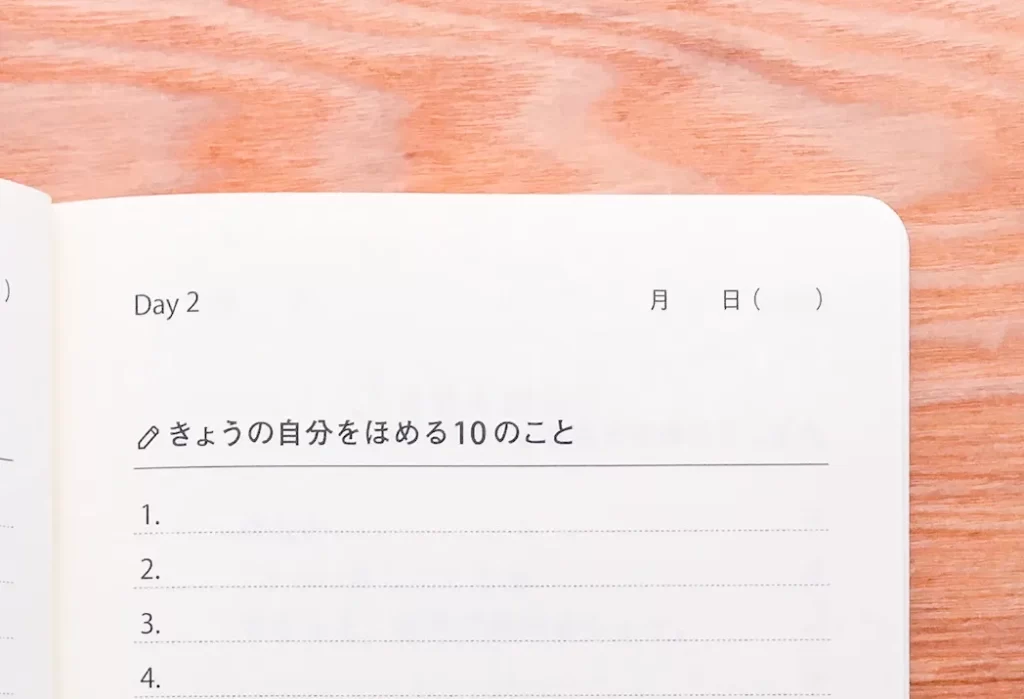 )
Day 2 月 日( )
きょうの自分をほめる10のこと
1.
2.
3.
4.